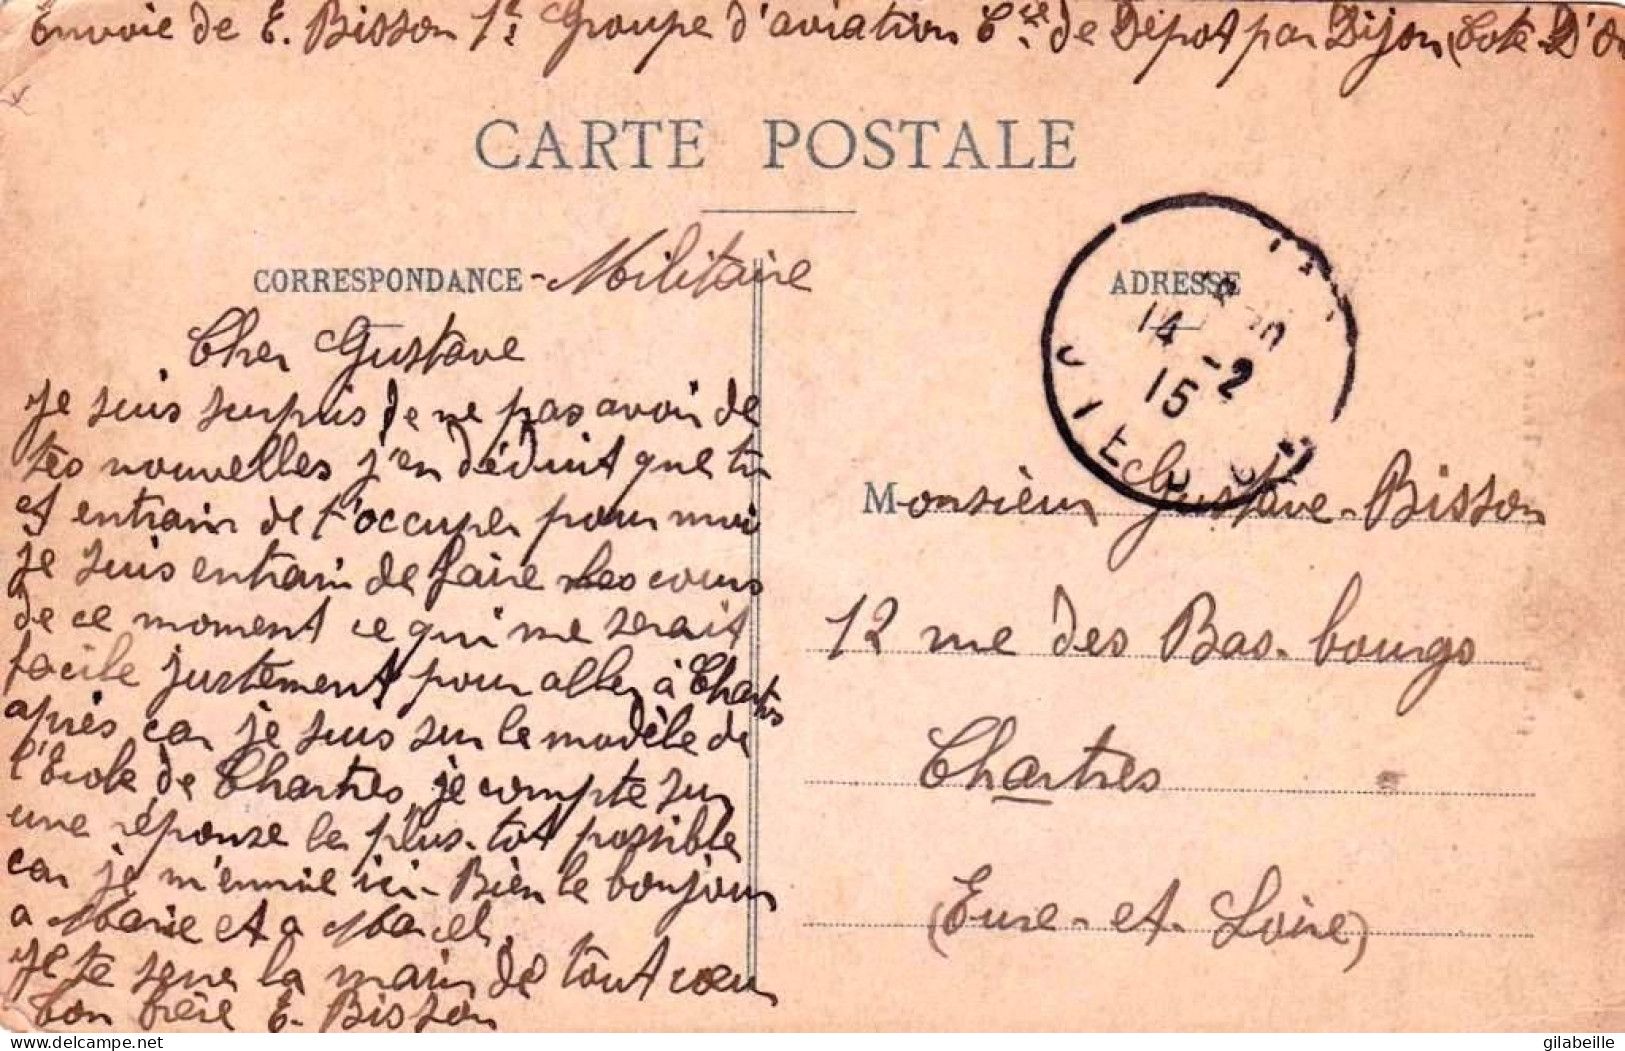 Envoie de E. Bisson 1r Groupe d'aviation Cie de Dépot par Dijon (Cote D'Or
CARTE POSTALE
CORRESPONDANCE - Militaire
ADRESSE
14 -2
15
Cher Gustave
Je suis surpris de ne pas avoir de
tes nouvelles j'en déduit que tu
es entrain de t'occuper pour moi
je suis entrain de faire les cours
de ce moment ce qui me serait
facile justement pour aller à Chartres
après car je suis sur le modèle de
l'École de Chartres, je compte sur
une réponse le plus-tot possible
car je m'ennuie ici - Bien le bonjour
a Marie et a Marcel.
Je te serre la main de tout cœur
ton frère E. Bisson
Monsieur Gustave-Bisson
12 rue des Bas-bourgs
Chartres
(Eure-et-Loire)
delcampe.net
gilabeille